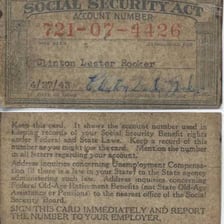 SOCIAL SECURITY ACT
ACCOUNT NUMBER
721-07-4426
Clinton Lester Booker
4/27/43
Keep this card. It shows the account number used in
keeping records of your Social Security Benefit rights
under Federal and State Laws. Keep a record of this
number as you might lose the card. (Mention the number
in all letters regarding your account).
Address inquiries concerning Unemployment Compensa-
tion (if there is a law in your State) to the State agency
administering such law. Address inquiries concerning
Federal Old-Age Retirement Benefits (and State Old-Age
Assistance or Pensions) to the nearest office of the Social
Security Board.
SIGN THIS CARD IMMEDIATELY AND REPORT
THE NUMBER TO YOUR EMPLOYER.